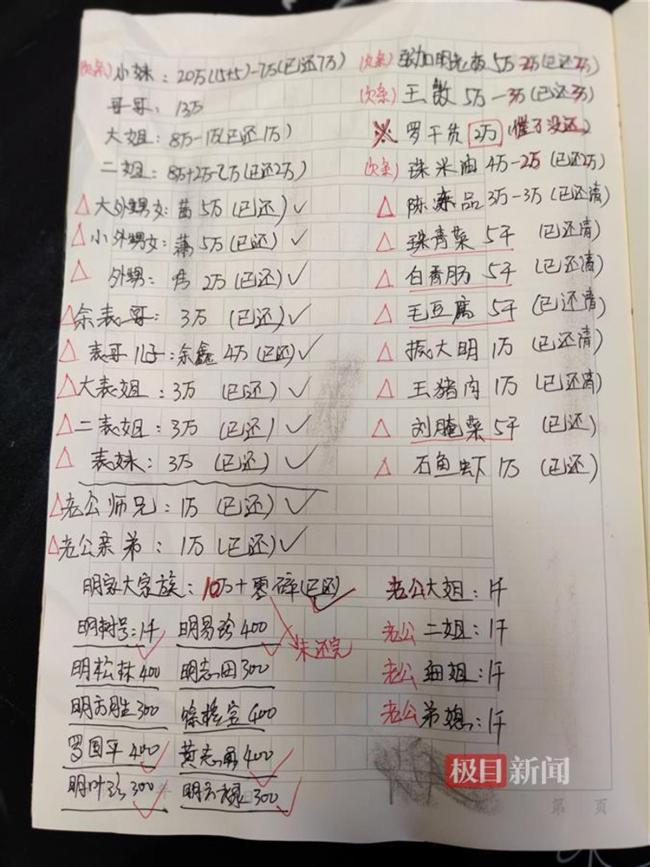 (欠条) 小妹：20万(15+5)-7万(已还7万)
哥哥：13万
大姐：8万-1万(已还1万)
二姐：8万+2万-2万(已还2万)
△大外甥女：5万(已还)✓
△小外甥女：5万(已还)✓
△外甥：2万(已还)✓
△余表哥：3万(已还)✓
△表哥儿子：余鑫4万(已还)✓
△大表姐：3万(已还)✓
△二表姐：3万(已还)✓
△表妹：3万(已还)✓
△老公师兄：1万(已还)✓
△老公亲弟：1万(已还)✓
明家大家族：10万+零碎(已还)✓
未还完
明树号：1千 明易珍400
明松林400 明志田300
明方胜300 400
罗国平400 黄志勇400
明叶珍300 明方禄300
(欠条) 5万-2万(已还2万)
(欠条) 王 5万-3万(已还3万)
※ 罗干货 2万 (催了没还)
(欠条) 珠米油 4万-2万(已还2万)
△ 陈冻品 3万-3万(已还清)
△ 珠青菜 5千 (已还清)
△ 白香肠 5千 (已还清)
△ 毛豆腐 5千 (已还清)
△ 振大明 1万 (已还清)
△ 王猪肉 1万 (已还清)
△ 刘腌菜 5千 (已还)
△ 石鱼虾 1万 (已还)
老公大姐：1千
老公二姐：1千
老公细姐：1千
老公弟媳：1千
极目新闻
第 页